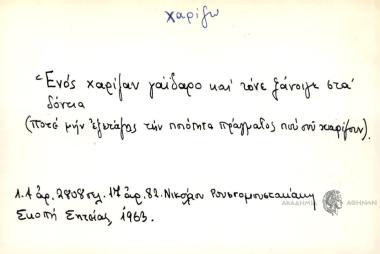 χαρίζω
Ἑνός χαρίζαν γαϊδαρο καί τόνε ξάνοιγε στα
δόντια
(ποτέ μήν ἐξετάζης τήν ποιότητα πράγματος πού σοῦ χαρίζουν).
Λ.Α ἀρ. 2808 σελ. 17 ἀρ. 82. Νικολάου Ρουσσομουστακάκη
Σκοπή Σητείας 1963.
ΑΚΑΔΗΜΙΑ ΑΘΗΝΩΝ